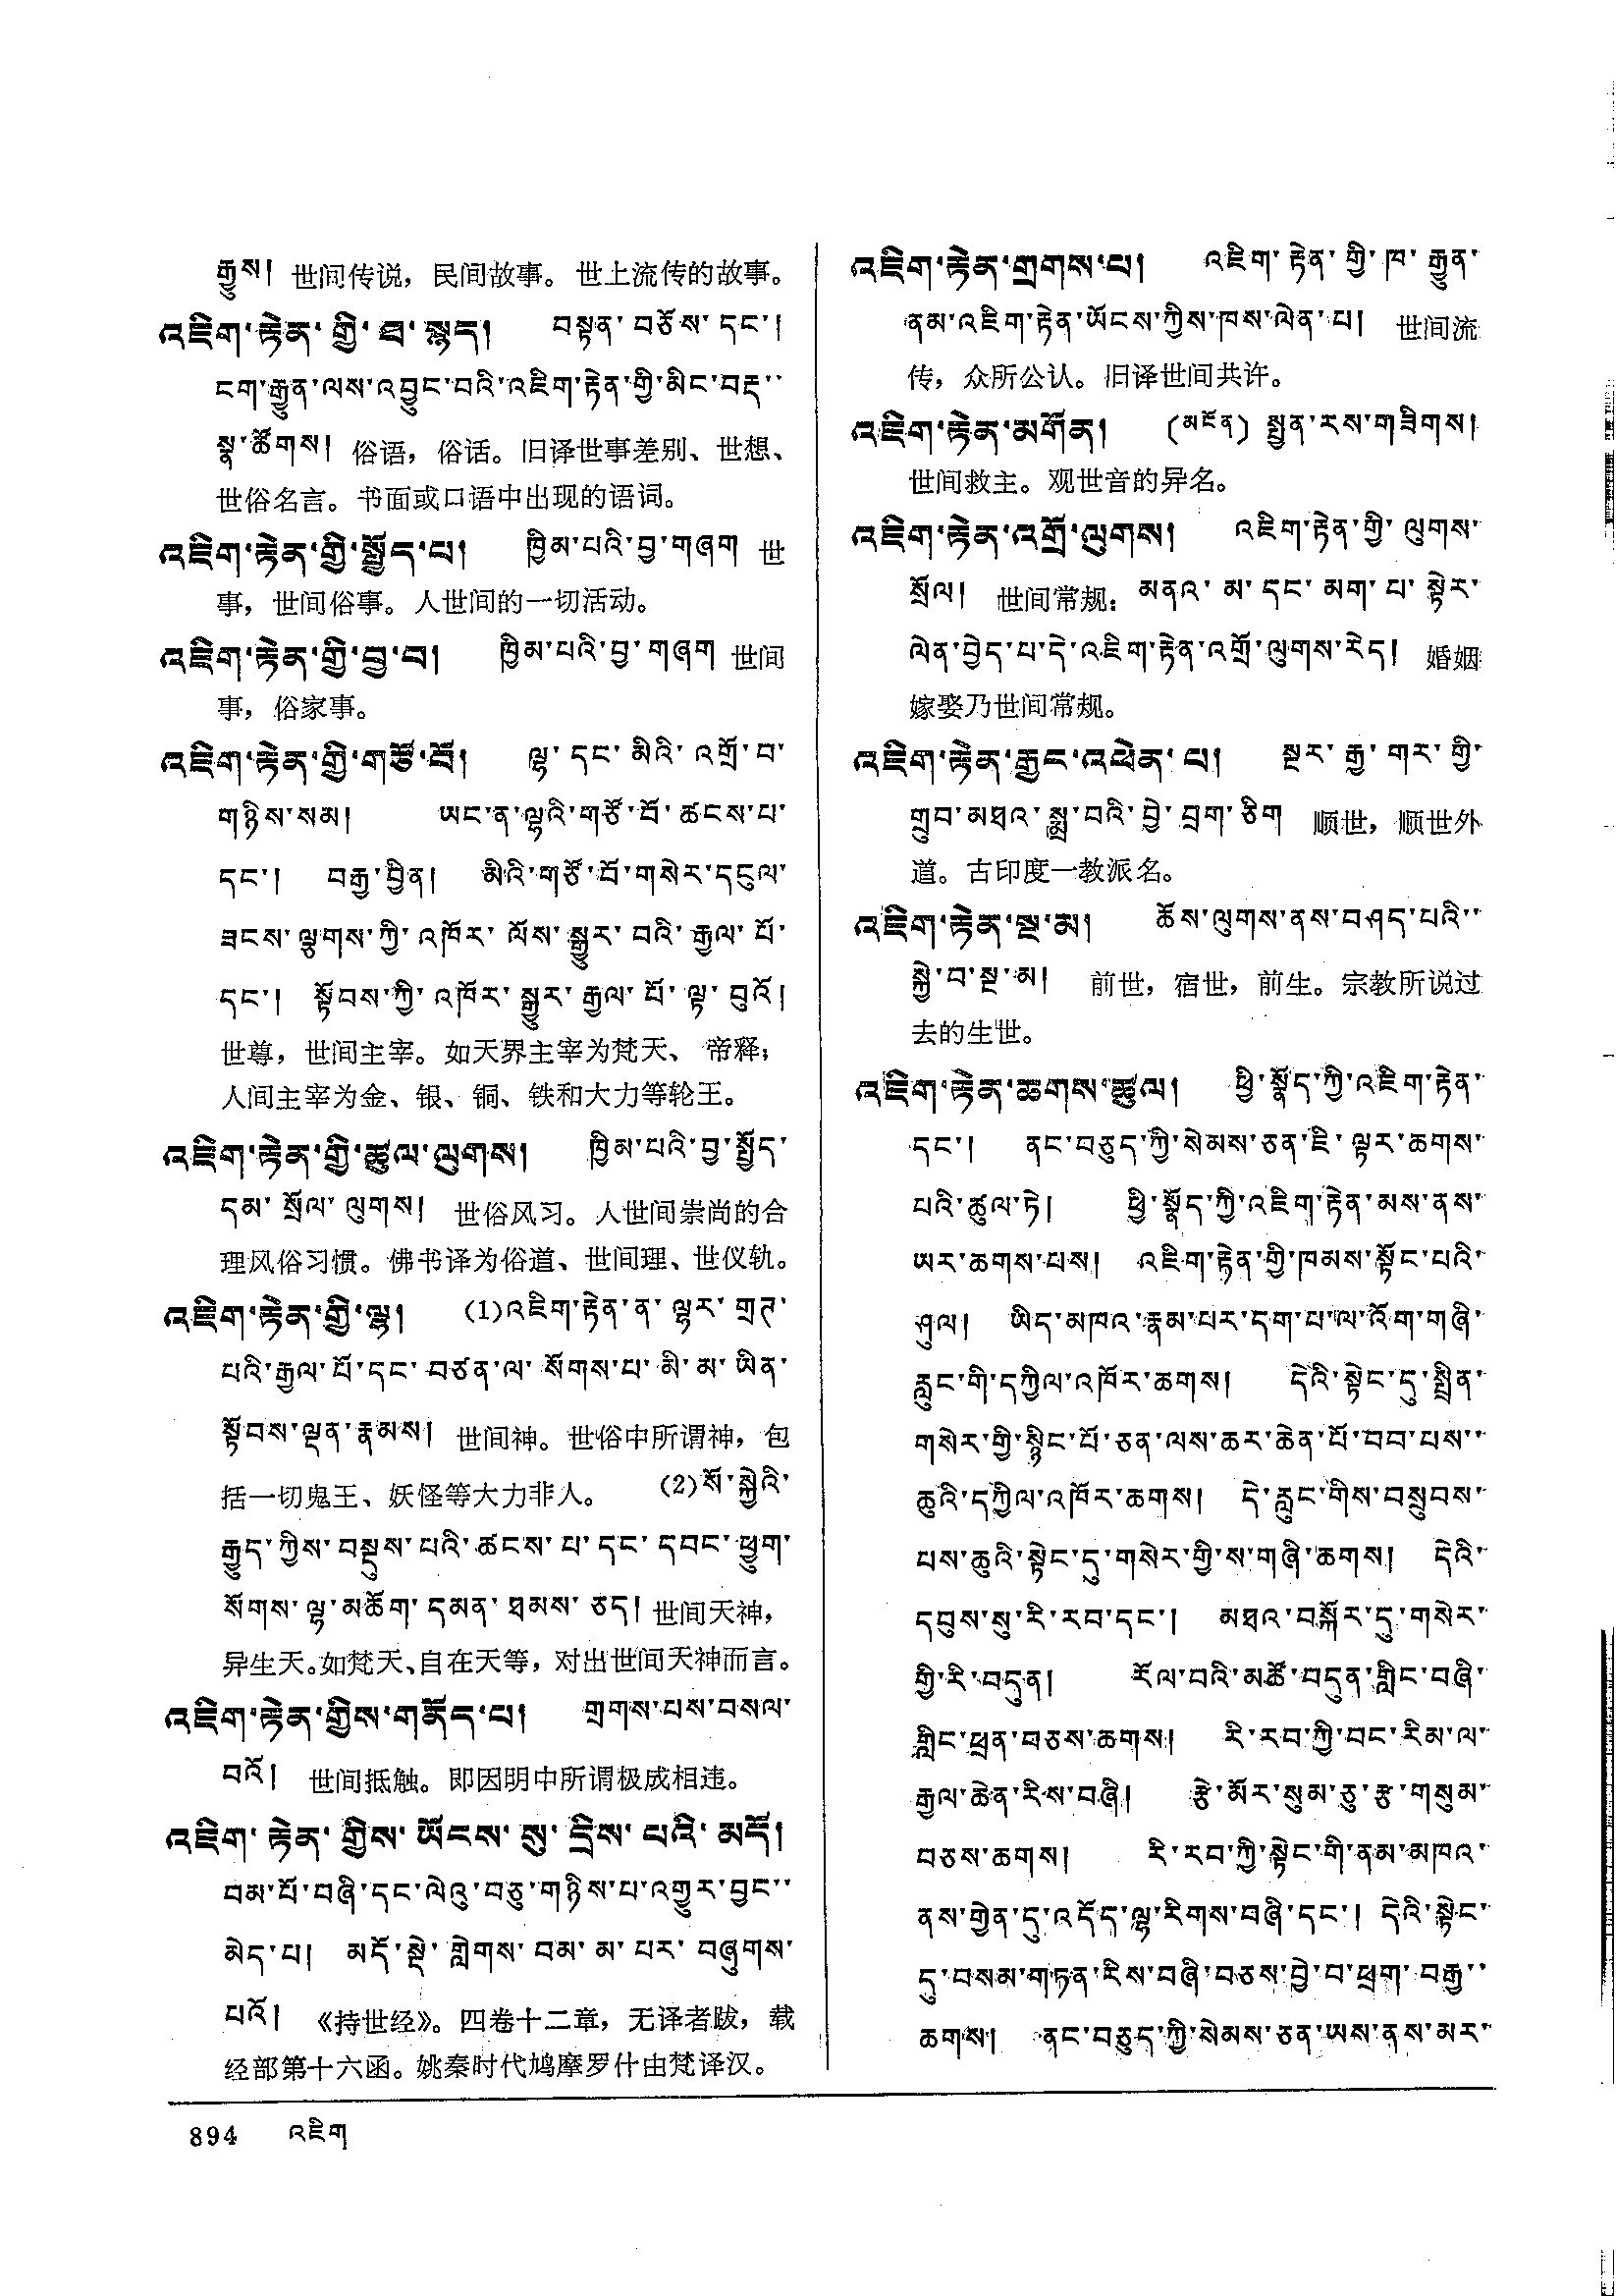 རྒྱུས། 世间传说，民间故事。世上流传的故事。
འཇིག་རྟེན་གྱི་ཐ་སྙད། བསྟན་བཅོས་དང་།
ངག་རྒྱུན་ལས་འབྱུང་བའི་འཇིག་རྟེན་གྱི་མིང་བརྡ་་
སྣ་ཚོགས། 俗语，俗话。旧译世事差别、世想、
世俗名言。书面或口语中出现的语词。
འཇིག་རྟེན་གྱི་སྤྱོད་པ། ཁྱིམ་པའི་བྱ་གཞག 世
事，世间俗事。人世间的一切活动。
འཇིག་རྟེན་གྱི་བྱ་བ། ཁྱིམ་པའི་བྱ་གཞག 世间
事，俗家事。
འཇིག་རྟེན་གྱི་གཙོ་བོ། ལྷ་དང་མིའི་འགྲོ་བ་
གཉིས་སམ། ཡང་ན་ལྷའི་གཙོ་བོ་ཚངས་པ་
དང་། བརྒྱ་བྱིན། མིའི་གཙོ་བོ་གསེར་དངུལ་
ཟངས་ལྕགས་ཀྱི་འཁོར་ལོས་སྒྱུར་བའི་རྒྱལ་པོ་
དང་། སྟོབས་ཀྱི་འཁོར་སྒྱུར་རྒྱལ་པོ་ལྟ་བུའོ།
世尊，世间主宰。如天界主宰为梵天、帝释；
人间主宰为金、银、铜、铁和大力等轮王。
འཇིག་རྟེན་གྱི་ཚུལ་ལུགས། ཁྱིམ་པའི་བྱ་སྤྱོད་
དམ་སྲོལ་ལུགས། 世俗风习。人世间崇尚的合
理风俗习惯。佛书译为俗道、世间理、世仪轨。
འཇིག་རྟེན་གྱི་ལྷ། (1)འཇིག་རྟེན་ན་ལྷར་གྲཊ་
པའི་རྒྱལ་པོ་དང་བཙན་ལ་སོགས་པ་མི་མ་ཡིན་
སྟོབས་ལྡན་རྣམས། 世间神。世俗中所谓神，包
括一切鬼王、妖怪等大力非人。 (2)སོ་སྐྱེའི་
རྒྱུད་ཀྱིས་བསྡུས་པའི་ཚངས་པ་དང་དབང་ཕྱུག་
སོགས་ལྷ་མཆོག་དམན་ཐམས་ཅད། 世间天神，
异生天。如梵天、自在天等，对出世间天神而言。
འཇིག་རྟེན་གྱིས་གནོད་པ། གྲགས་པས་བསལ་
བའོ། 世间抵触。即因明中所谓极成相违。
འཇིག་རྟེན་གྱིས་ཡོངས་སུ་དྲིས་པའི་མདོ།
བམ་པོ་བཞི་དང་ལེའུ་བཅུ་གཉིས་པ་འགྱུར་བྱང་་
མེད་པ། མདོ་སྡེ་གླེགས་བམ་མ་པར་བཞུགས་
པའོ། 《持世经》。四卷十二章，无译者跋，载
经部第十六函。姚秦时代鸠摩罗什由梵译汉。
འཇིག་རྟེན་གྲགས་པ། འཇིག་རྟེན་གྱི་ཁ་རྒྱུན་
ནམ་འཇིག་རྟེན་ཡོངས་ཀྱིས་ཁས་ལེན་པ། 世间流
传，众所公认。旧译世间共许。
འཇིག་རྟེན་མགོན། (མངོན) སྤྱན་རས་གཟིགས།
世间救主。观世音的异名。
འཇིག་རྟེན་འགྲོ་ལུགས། འཇིག་རྟེན་གྱི་ལུགས་
སྲོལ། 世间常规：མནའ་མ་དང་མག་པ་སྟེར་
ལེན་བྱེད་པ་དེ་འཇིག་རྟེན་འགྲོ་ལུགས་རེད། 婚姻
嫁娶乃世间常规。
འཇིག་རྟེན་རྒྱང་འཕེན་པ། སྔར་རྒྱ་གར་གྱི་
གྲུབ་མཐའ་སྨྲ་བའི་བྱེ་བྲག་ཅིག 顺世，顺世外
道。古印度一教派名。
འཇིག་རྟེན་སྔ་མ། ཆོས་ལུགས་ནས་བཤད་པའི་་
སྐྱེ་བ་སྔ་མ། 前世，宿世，前生。宗教所说过
去的生世。
འཇིག་རྟེན་ཆགས་ཚུལ། ཕྱི་སྣོད་ཀྱི་འཇིག་རྟེན་
དང་། ནང་བཅུད་ཀྱི་སེམས་ཅན་ཇི་ལྟར་ཆགས་
པའི་ཚུལ་ཏེ། ཕྱི་སྣོད་ཀྱི་འཇིག་རྟེན་མས་ནས་
ཡར་ཆགས་པས། འཇིག་རྟེན་གྱི་ཁམས་སྟོང་པའི་
ཤུལ། ཡིད་མཁའ་རྣམ་པར་དག་པ་ལ་འོག་གཞི་
རླུང་གི་དཀྱིལ་འཁོར་ཆགས། དེའི་སྟེང་དུ་སྤྲིན་
གསེར་གྱི་སྙིང་པོ་ཅན་ལས་ཆར་ཆེན་པོ་བབ་པས་་
ཆུའི་དཀྱིལ་འཁོར་ཆགས། དེ་རླུང་གིས་བསྲུབས་
པས་ཆུའི་སྟེང་དུ་གསེར་གྱི་ས་གཞི་ཆགས། དེའི་
དབུས་སུ་རི་རབ་དང་། མཐའ་བསྐོར་དུ་གསེར་
གྱི་རི་བདུན། རོལ་བའི་མཚོ་བདུན་གླིང་བཞི་
གླིང་ཕྲན་བཅས་ཆགས། རི་རབ་ཀྱི་བང་རིམ་ལ་
རྒྱལ་ཆེན་རིས་བཞི། རྩེ་མོར་སུམ་ཅུ་རྩ་གསུམ་
བཅས་ཆགས། རི་རབ་ཀྱི་སྟེང་གི་ནམ་མཁའ་
ནས་གྱེན་དུ་འདོད་ལྷ་རིགས་བཞི་དང་། དེའི་སྟེང་
དུ་བསམ་གཏན་རིས་བཞི་བཅས་བྱེ་བ་ཕྲག་བརྒྱ་་
ཆགས། ནང་བཅུད་ཀྱི་སེམས་ཅན་ཡས་ནས་མར་
894 འཇིག